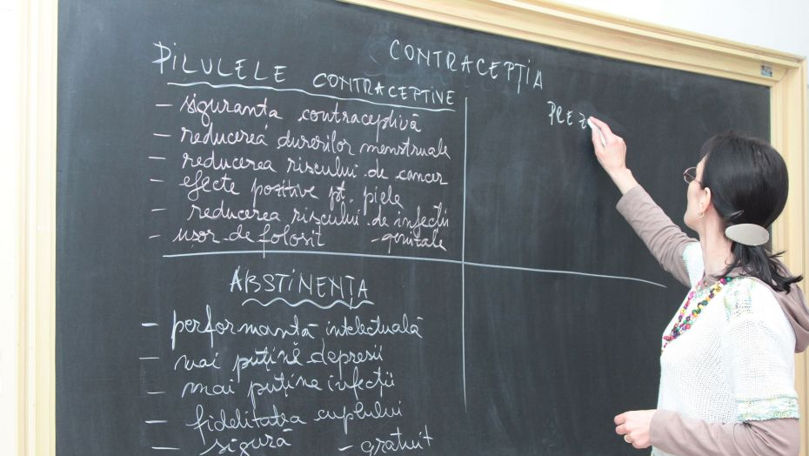 CONTRACEPȚIA
PILULELE CONTRACEPTIVE
- siguranta contraceptivă
- reducerea durerilor menstruale
- reducerea riscului de cancer
- efecte pozitive pt. piele
- reducerea riscului de infecții
- ușor de folosit - genitale
ABSTINENȚA
- performanță intelectuală
- mai puține depresii
- mai puține infecții
- fidelitatea cuplului
- sigură - gratuit
PREZ